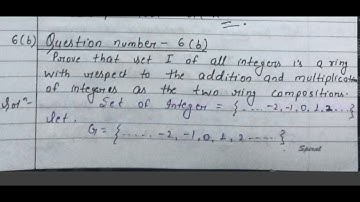 6(b) Question number - 6(b)
Prove that set I of all integers is a ring
with respect to the addition and multiplicat
of integeres as the two ring compositions.
Solⁿ- Set of Integer = {.....-2,-1,0,1,2....}
Let.
G = {.....-2,-1,0,1,2.....}
Spiral